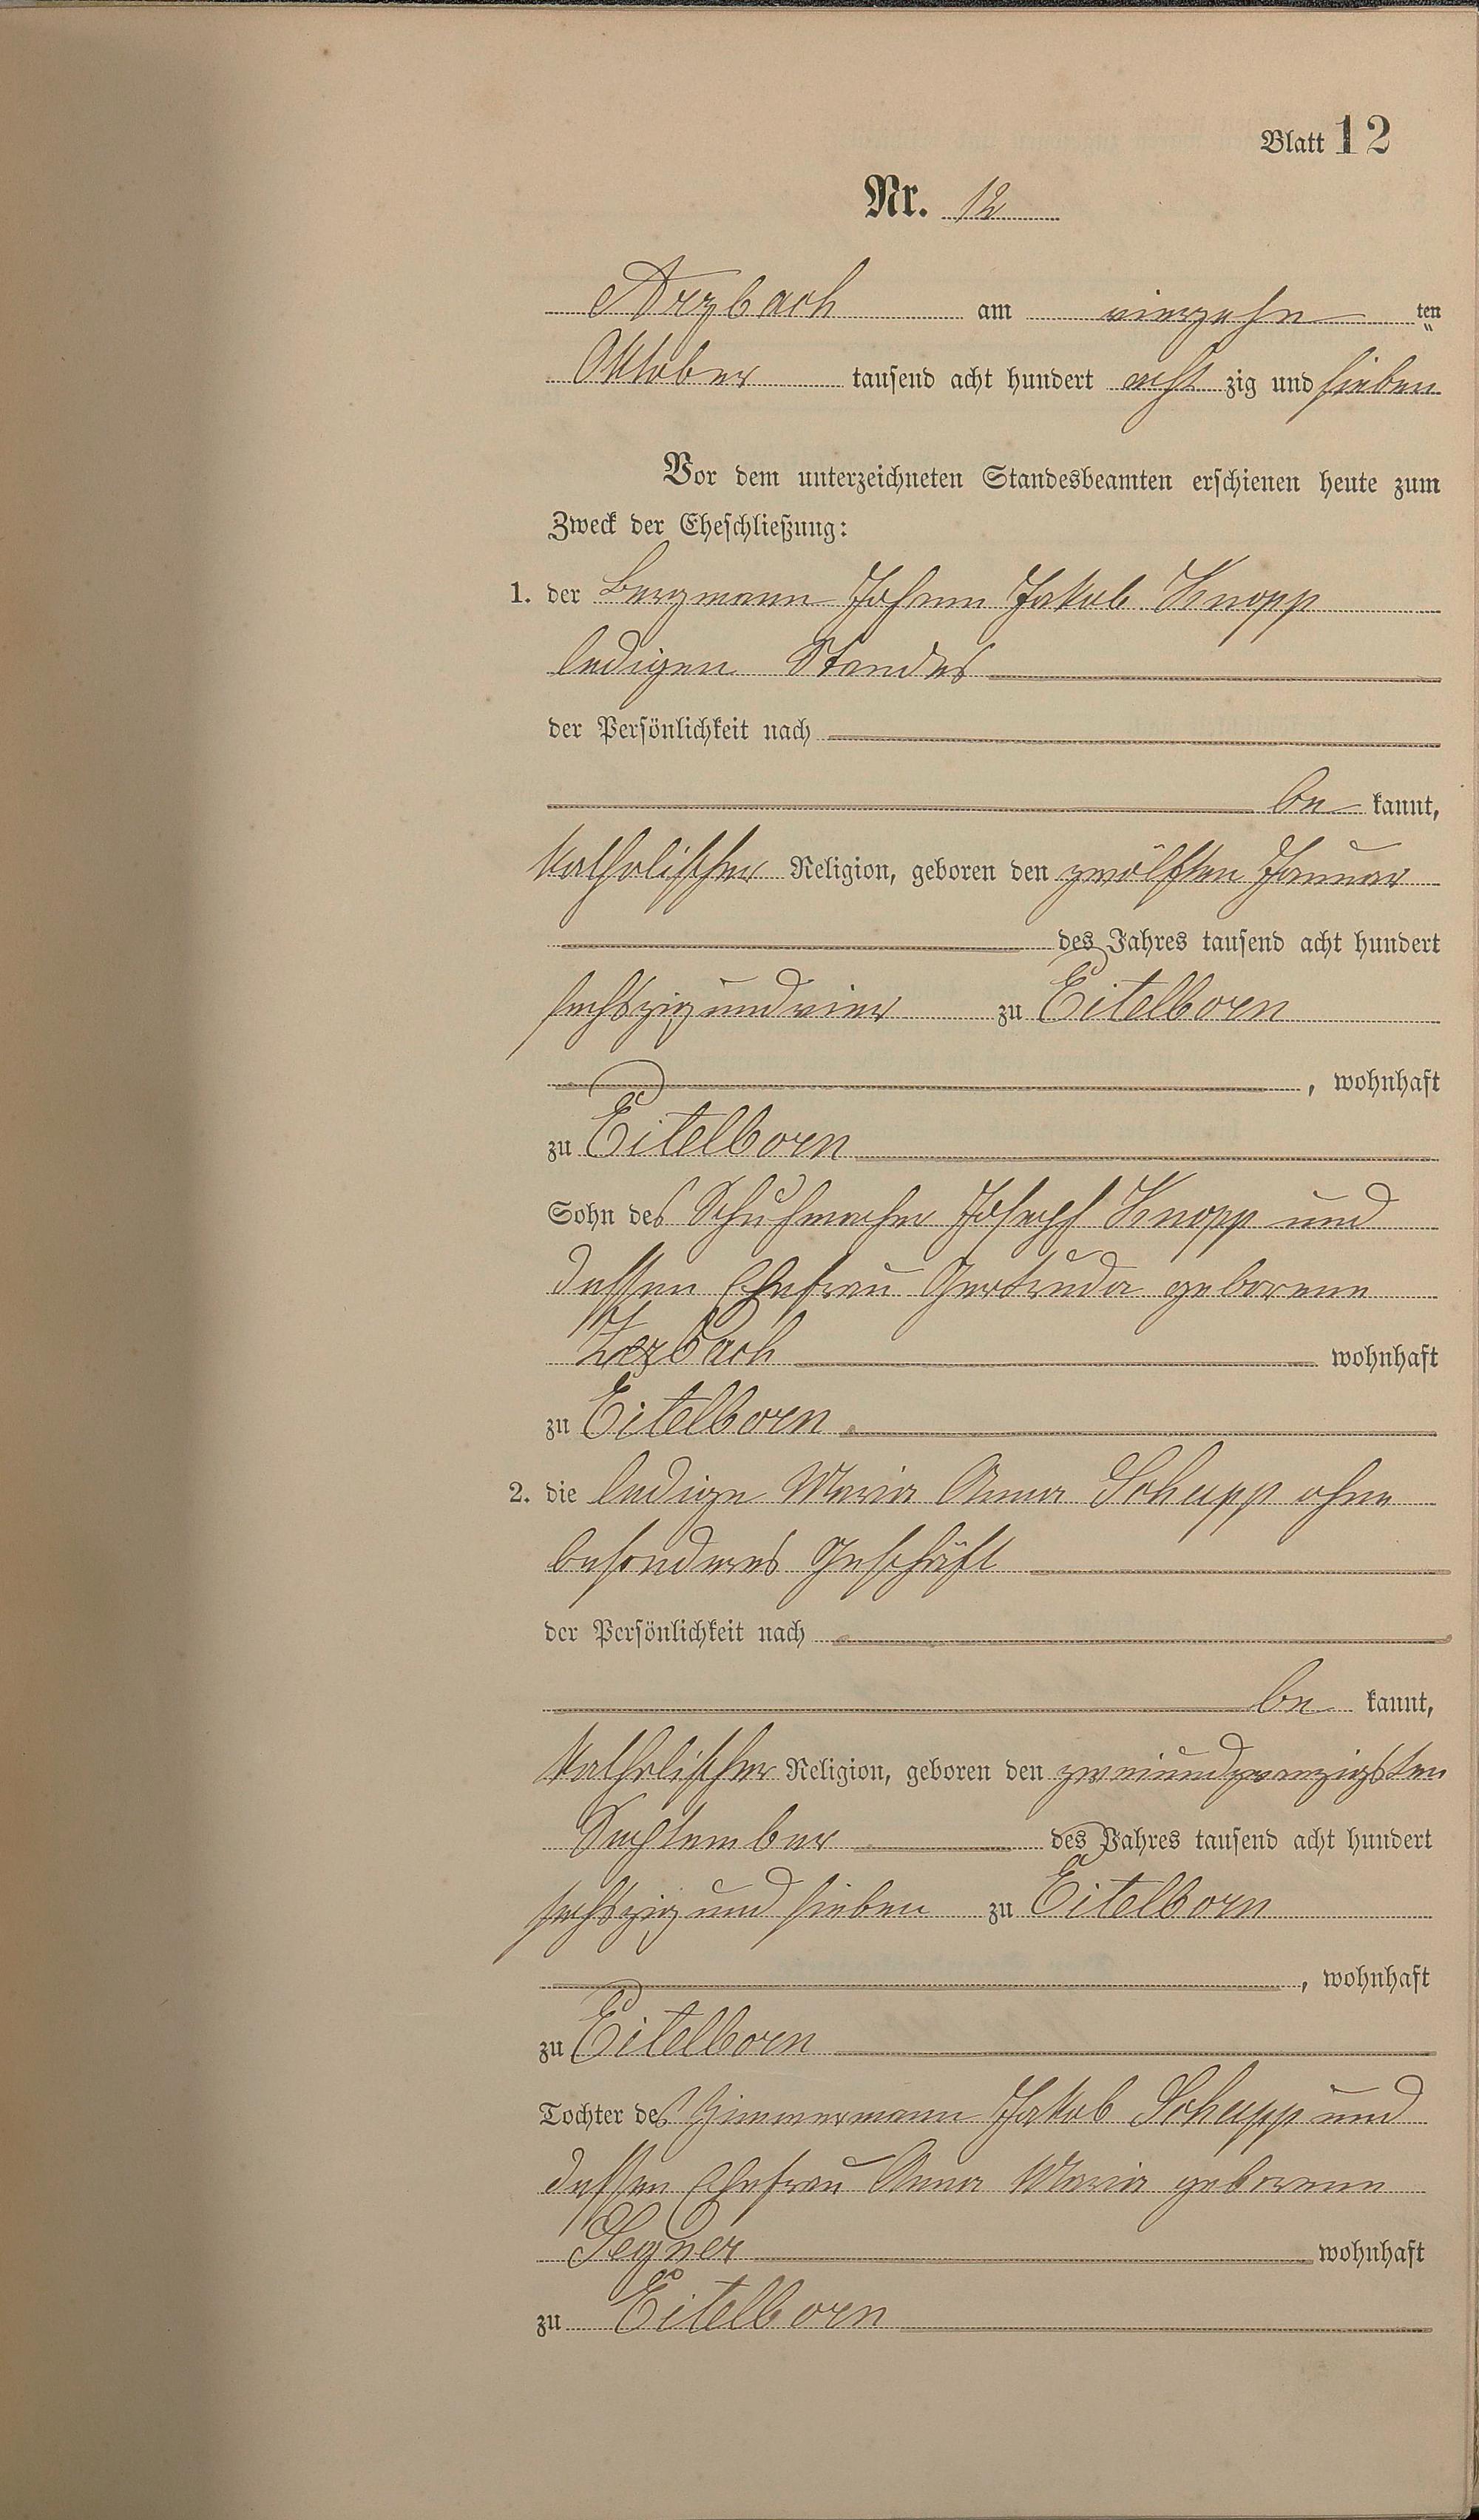 Blatt 12
Nr. 12
Arzbach am vierzehn ten
Oktober tausend acht hundert acht zig und sieben
Vor dem unterzeichneten Standesbeamten erschienen heute zum
Zweck der Eheschließung:
1. der Bergmann Johann Jakob Knopp
ledigen Standes
der Persönlichkeit nach
be kannt,
katholischer Religion, geboren den zwölften Januar
des Jahres tausend acht hundert
sechszig und vier zu Eitelborn
, wohnhaft
zu Eitelborn
Sohn des Schuhmacher Joseph Knopp und
dessen Ehefrau Gertruda geborene
wohnhaft
zu Eitelborn
2. die ledige Maria Anna Schupp ohne
besonderes Geschäft
der Persönlichkeit nach
be kannt,
katholischer Religion, geboren den zweiundzwanzigsten
September des Jahres tausend acht hundert
sechszig und sieben zu Eitelborn
, wohnhaft
zu Eitelborn
Tochter des Zimmermann Jakob Schupp und
dessen Ehefrau Anna Maria geborene
Segner wohnhaft
zu Eitelborn